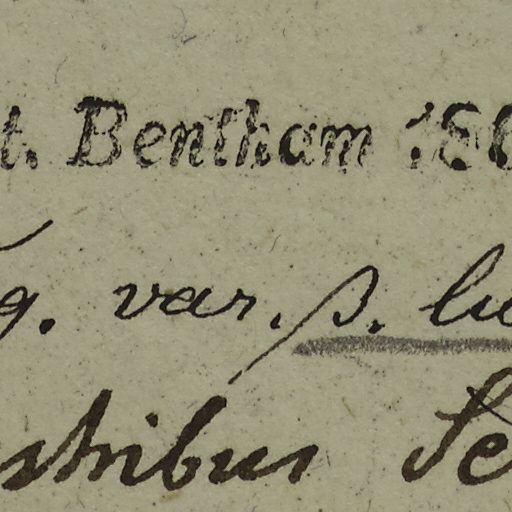 t. Bentham 186
g. var. β. lu
stribus Se